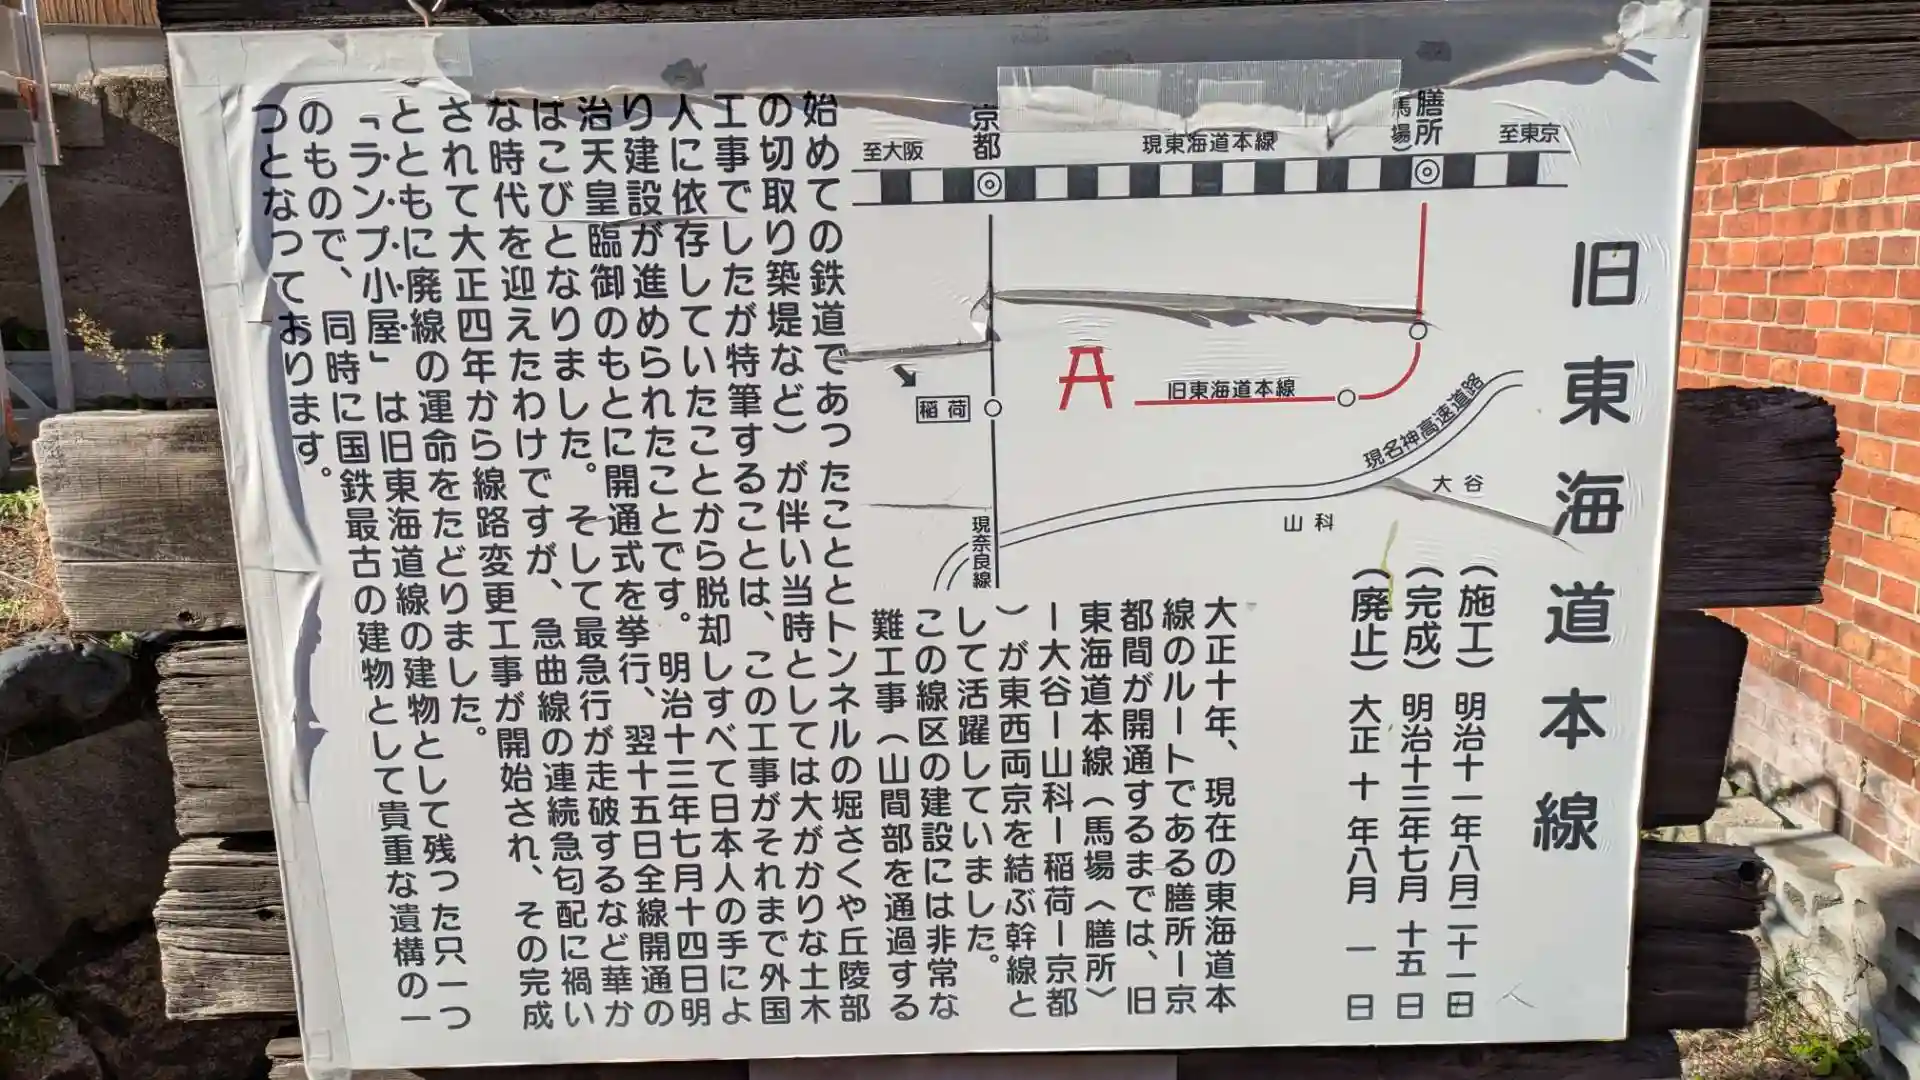 旧東海道本線
（施工）明治十一年八月二十一日
（完成）明治十三年七月十五日
（廃止）大正十年八月一日
至大阪
京都
現東海道本線
膳所
（馬場）
至東京
稲荷
旧東海道本線
現名神高速道路
大谷
山科
現奈良線
大正十年、現在の東海道本
線のルートである膳所ー京
都間が開通するまでは、旧
東海道本線（馬場〈膳所〉
ー大谷ー山科ー稲荷ー京都
）が東西両京を結ぶ幹線と
して活躍していました。
この線区の建設には非常な
難工事（山間部を通過する
始めての鉄道であったこととトンネルの堀さくや丘陵部
の切取り築堤など）が伴い当時としては大がかりな土木
工事でしたが特筆することは、この工事がそれまで外国
人に依存していたことから脱却しすべて日本人の手によ
り建設が進められたことです。明治十三年七月十四日明
治天皇臨御のもとに開通式を挙行、翌十五日全線開通の
はこびとなりました。そして最急行が走破するなど華か
な時代を迎えたわけですが、急曲線の連続急匂配に禍い
されて大正四年から線路変更工事が開始され、その完成
とともに廃線の運命をたどりました。
「ランプ小屋」は旧東海道線の建物として残った只一つ
のもので、同時に国鉄最古の建物として貴重な遺構の一
つとなっております。